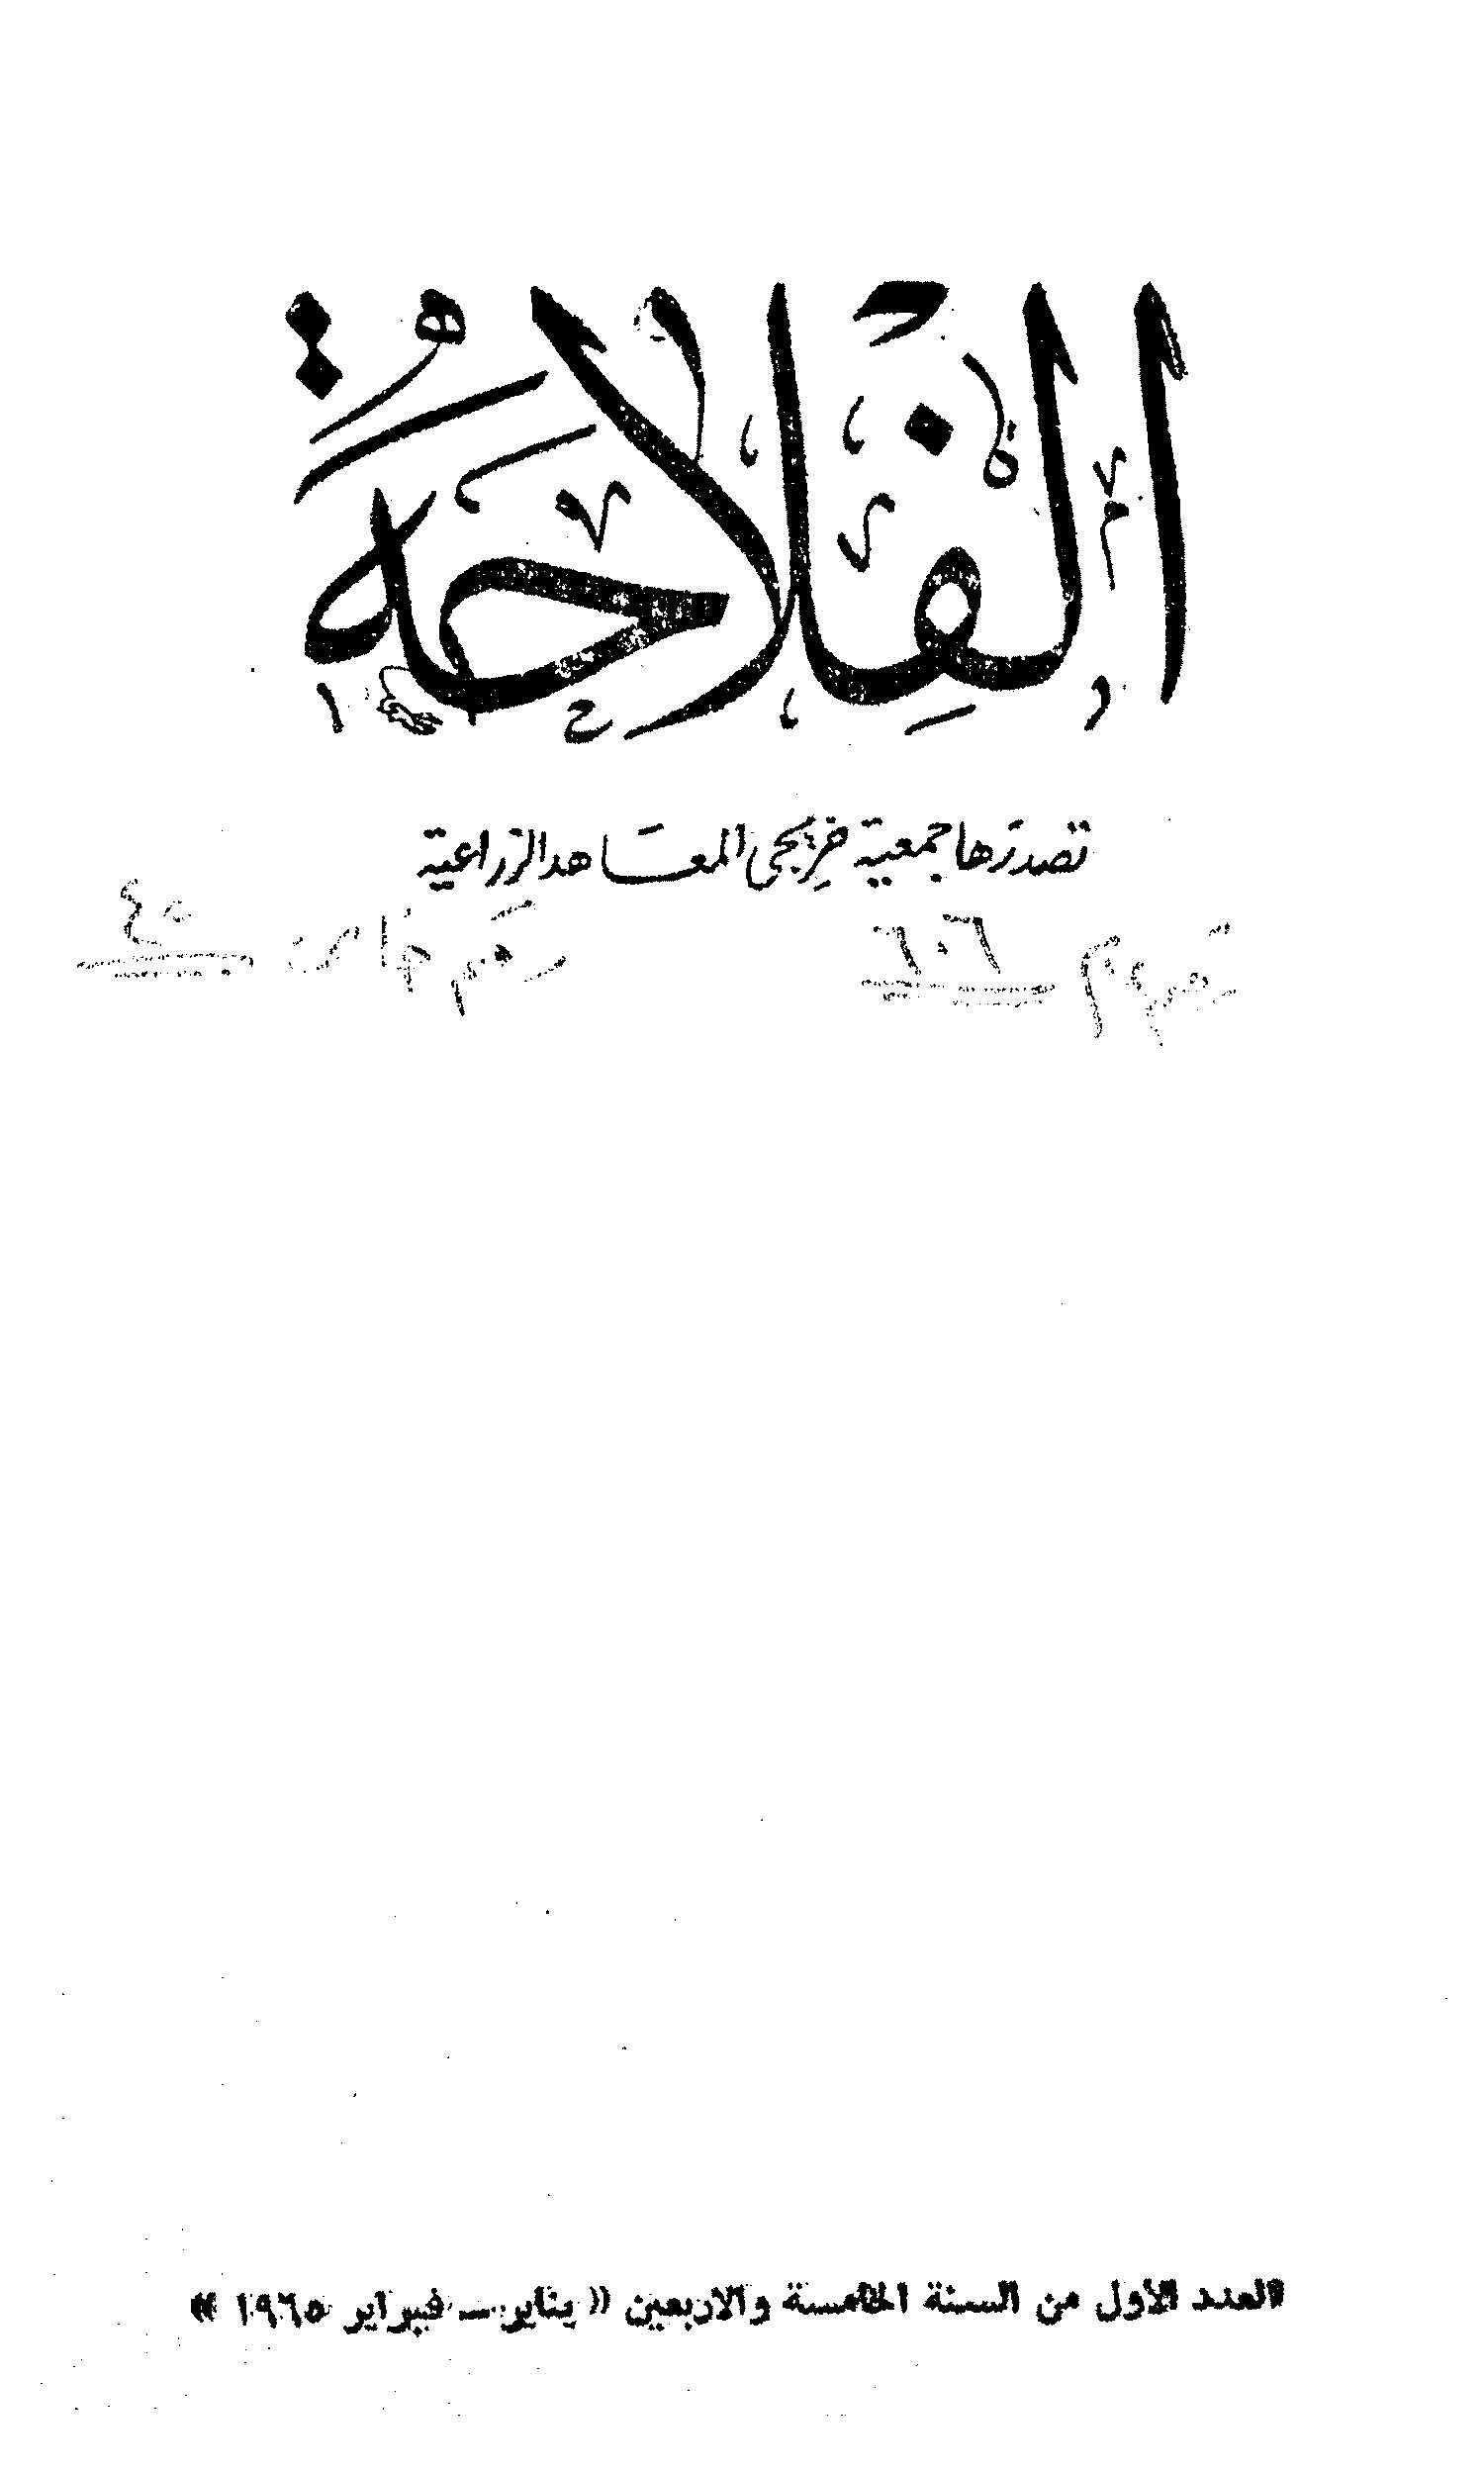 الفلاحة
تصدرها جمعية خريجي المعاهد الزراعية
رقم عام ٦٠٦ رقم خاص ٤٥
العدد الأول من السنة الخامسة والاربعين « يناير — فبراير ١٩٦٥ »